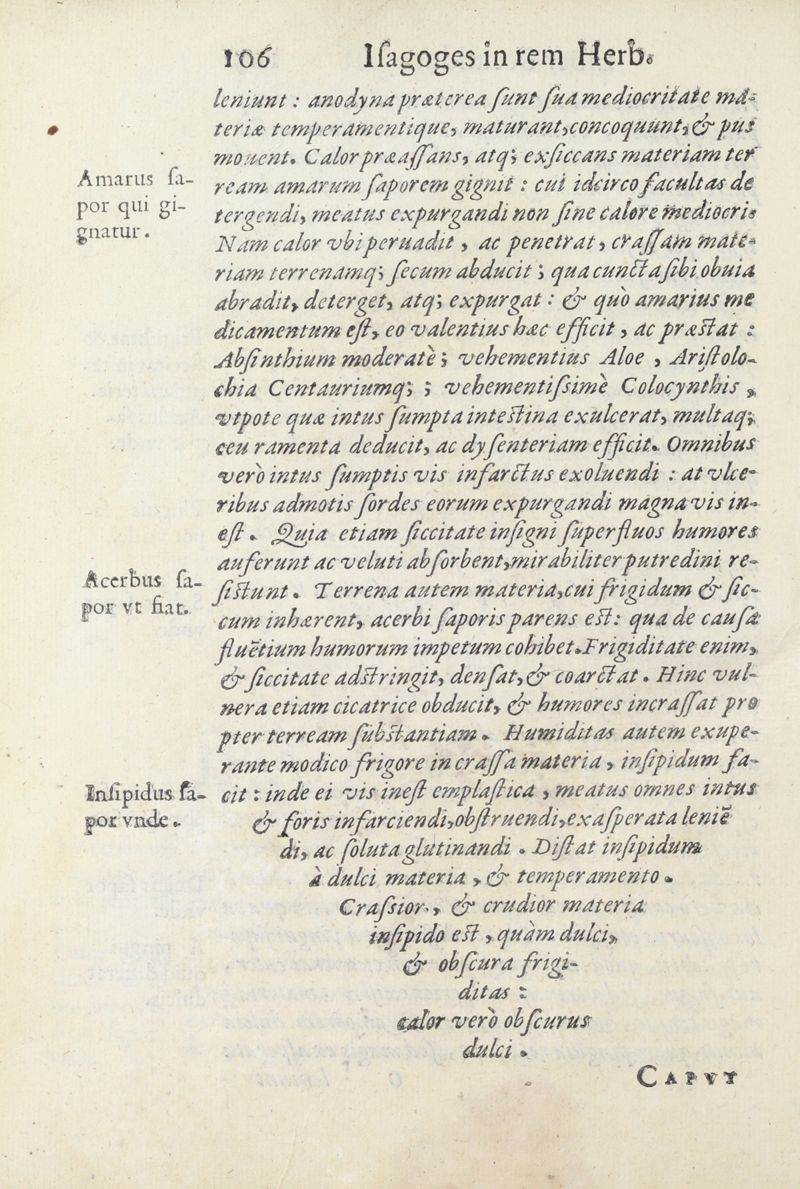 106 Iſagoges in rem Herb.
leniunt : anodyna præterea ſunt ſua mediocritate ma-
teriæ temperamentique, maturant, concoquunt, & pus
mouent. Calor præaſſans, atq; exſiccans materiam ter
ream amarum ſaporem gignit : cui idcirco facultas de
tergendi, meatus expurgandi non ſine calore mediocris
Nam calor vbi peruadit , ac penetrat, craſſam mate-
riam terrenamq; ſecum abducit ; qua cuncta ſibi obuia
abradit, deterget, atq; expurgat : & quò amarius me
dicamentum eſt, eo valentius hæc efficit , ac præstat :
Abſinthium moderatè ; vehementius Aloe , Ariſtolo-
chia Centauriumq; ; vehementiſsimè Colocynthis ,
vtpote quæ intus ſumpta intestina exulcerat, multaq;
ceu ramenta deducit, ac dyſenteriam efficit. Omnibus
verò intus ſumptis vis infarctus exoluendi : at vlce-
ribus admotis ſordes eorum expurgandi magna vis in-
eſt . Quia etiam ſiccitate inſigni ſuperfluos humores
auferunt ac veluti abſorbent, mirabiliter putredini re-
ſistunt . Terrena autem materia, cui frigidum & ſic-
cum inhærent, acerbi ſaporis parens est : qua de cauſa
fluētium humorum impetum cohibet. Frigiditate enim,
& ſiccitate adstringit, denſat, & coarctat . Hinc vul-
nera etiam cicatrice obducit, & humores incraſſat pro
pter terream ſubstantiam . Humiditas autem exupe-
rante modico frigore in craſſa materia , inſipidum fa-
cit : inde ei vis ineſt emplaſtica , meatus omnes intus
& foris infarciendi, obſtruendi, exaſperata leniē
di, ac ſoluta glutinandi . Diſtat inſipidum
à dulci materia , & temperamento .
Craſsior , & crudior materia
inſipido est , quàm dulci,
& obſcura frigi-
ditas :
calor verò obſcurus
dulci .
CAPVT
Amarus ſa-
por qui gi-
gnatur .
Acerbus ſa-
por vt fiat.
Inſipidus ſa-
por vnde .